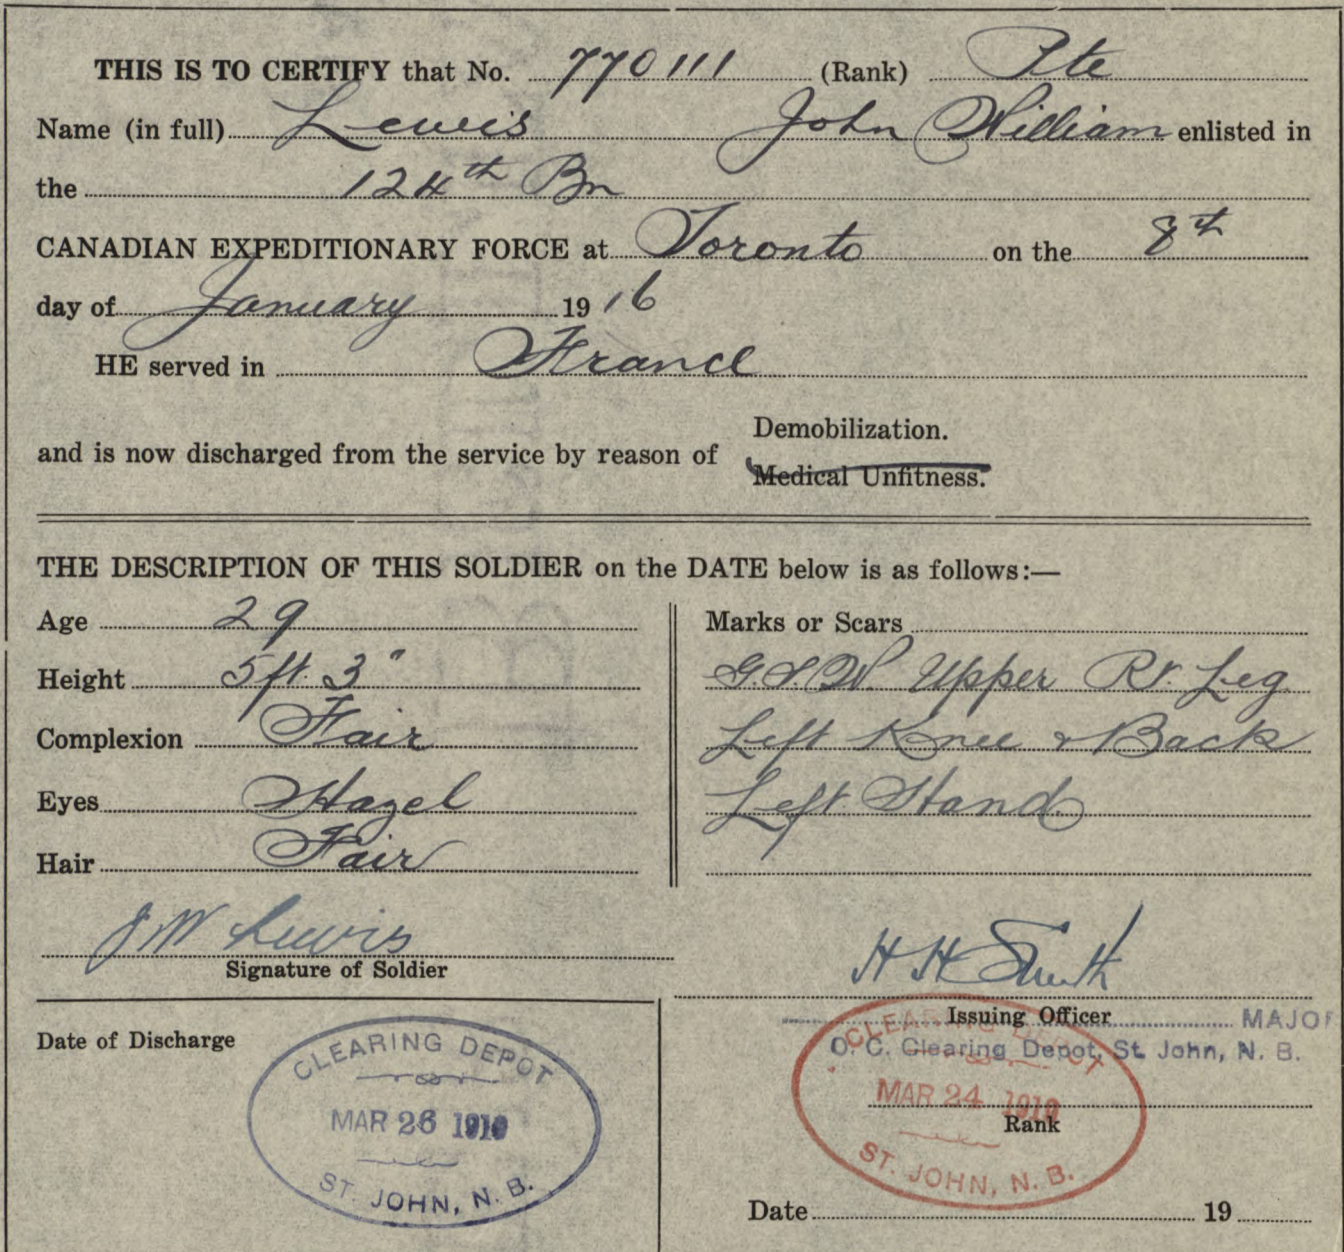 THIS IS TO CERTIFY that No. 770111 (Rank) Pte
Name (in full) Lewis John William enlisted in
the 124th Bn
CANADIAN EXPEDITIONARY FORCE at Toronto on the 8th
day of January 1916
HE served in France
and is now discharged from the service by reason of Demobilization.
Medical Unfitness.
THE DESCRIPTION OF THIS SOLDIER on the DATE below is as follows:—
Age 29
Height 5ft. 3"
Complexion Fair
Eyes Hazel
Hair Fair
Marks or Scars
G.S.W. Upper Rt. Leg
Left Knee & Back
Left Hand
J W Lewis
Signature of Soldier
H H Smith
Issuing Officer MAJOR
O. C. Clearing Depot, St. John, N. B.
Rank
Date of Discharge
CLEARING DEPOT
MAR 26 1919
ST. JOHN, N. B.
CLEARING DEPOT
MAR 24 1919
ST. JOHN, N. B.
Date 19